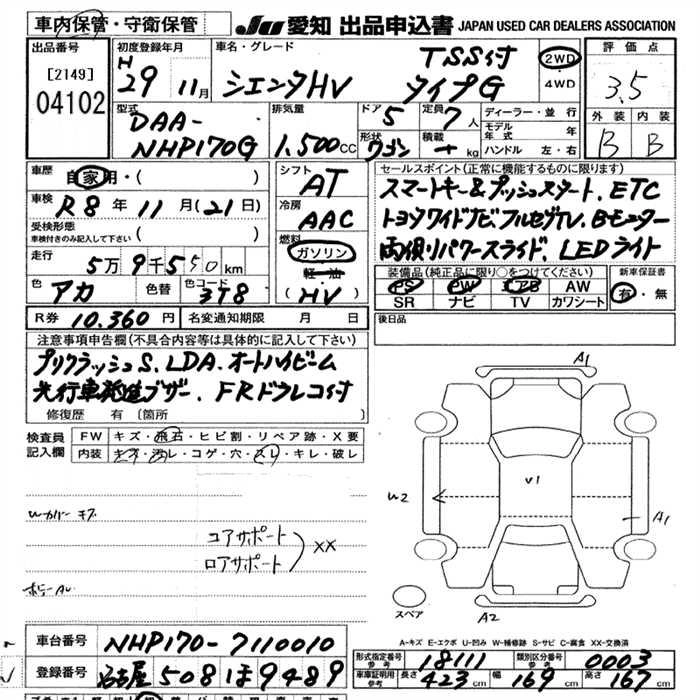 車内保管・守衛保管
JU 愛知 出品申込書 JAPAN USED CAR DEALERS ASSOCIATION
出品番号
[2149]
04102
初度登録年月
H
29 11月
車名・グレード
シエンタHV
TSS付
タイプG
2WD
・4WD
評価点
3.5
外装 内装
B B
型式
DAA-
NHP170G
排気量
1.500cc
ドア
5
形状
ワゴン
定員
7人
積載
kg
ディーラー・並行
モデル年式 年
ハンドル 左・右
車歴
自家用・( )
車検
R8年11月(21日)
受検形態
車検付きのみ記入して下さい ( )
走行
5万9千550km
色
アカ
色替
色コード
3T8
シフト
AT
冷房
AAC
燃料
ガソリン
軽油
(HV)
R券 10.360円
名変通知期限 月 日
セールスポイント(正常に機能するものに限ります)
スマートキー&プッシュスタート、ETC
トヨタワイドナビ、フルセグTV、Bモニター
両側パワースライド、LEDライト
装備品(純正品に限り○をつけてください)
PS PW エアB AW
SR ナビ TV カワシート
新車保証書
有・無
後日品
注意事項申告欄(不具合内容等は具体的に記入して下さい)
プリクラッシュS、LDA、オートハイビーム
先行車発進ブザー、FRドラレコ付
修復歴 有 〔箇所
検査員
記入欄
FW キズ・飛石・ヒビ割・リペア跡・X要
内装 キズ・汚レ・コゲ・穴・スレ・キレ・破レ
コアサポート
ロアサポート
XX
A1
V1
W2
A1
A2
スペア
A-キズ E-エクボ U-凹み W-補修跡 S-サビ C-腐食 XX-交換済
車台番号 NHP170-7110010
登録番号 名古屋 508 ほ 9489
形式指定番号
参考
18111
類別区分番号
参考
0003
車庫証明用
参考
長さ 423cm
幅 169cm
高さ 167cm